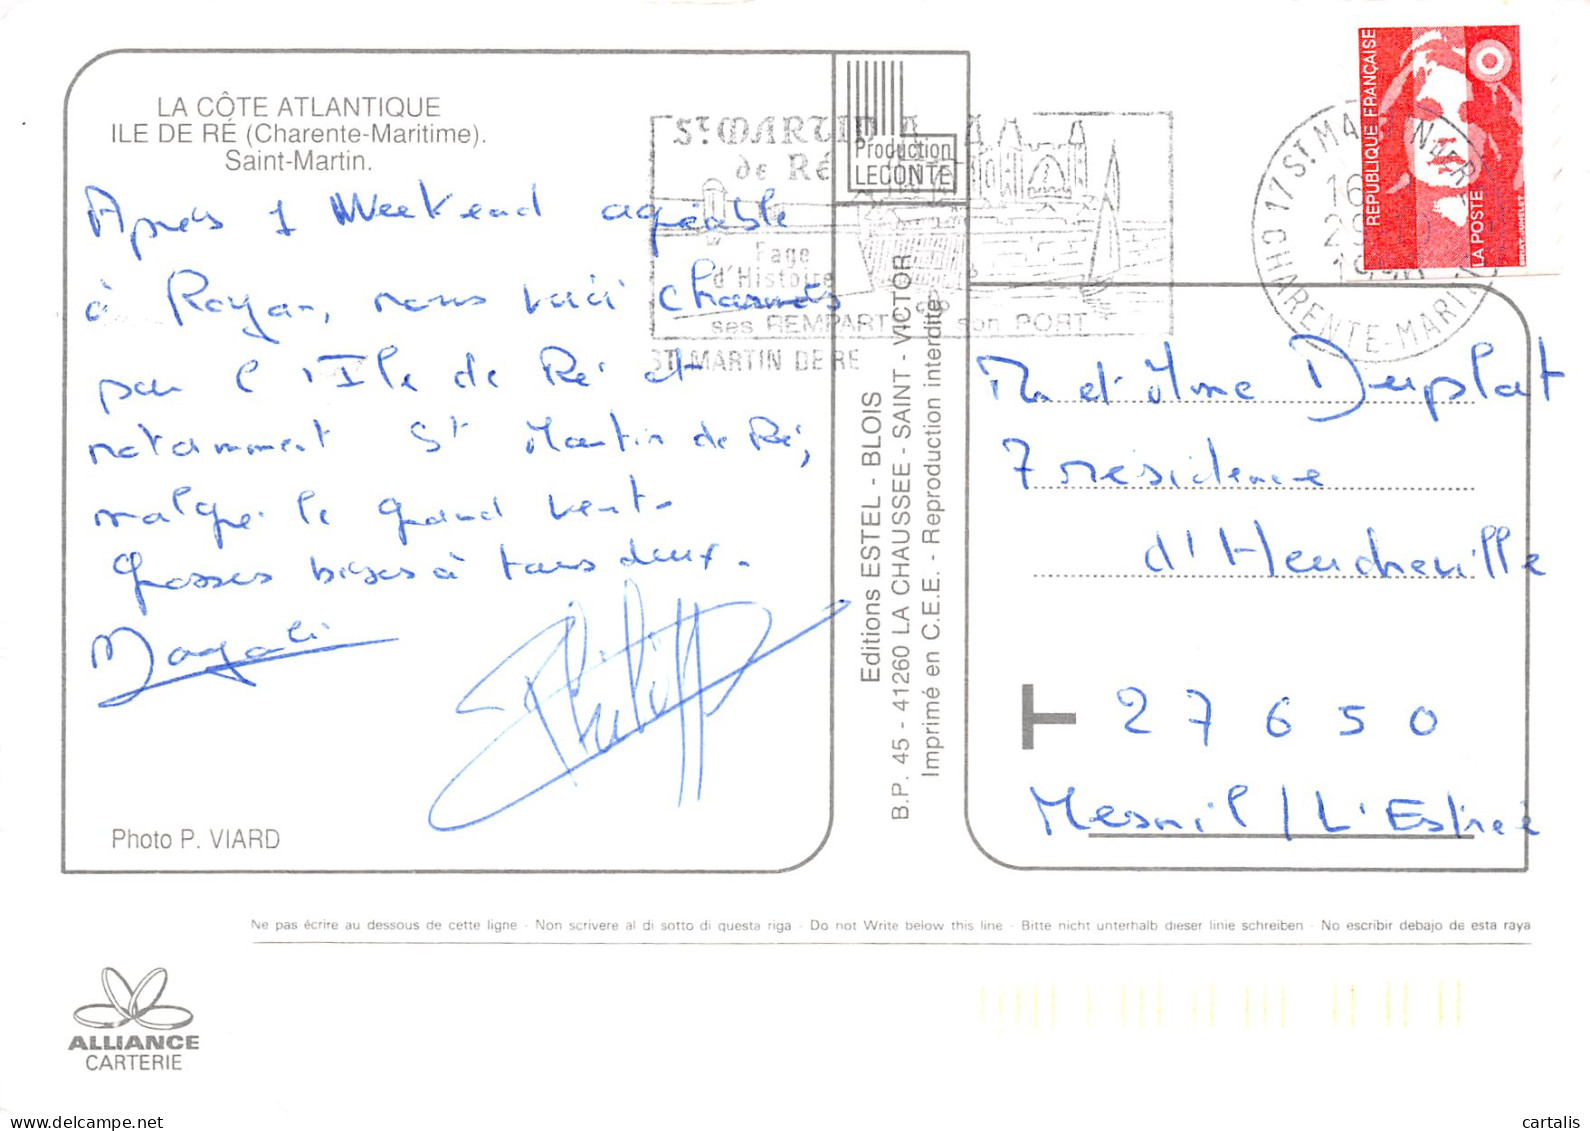 LA CÔTE ATLANTIQUE
ILE DE RÉ (Charente-Maritime).
Saint-Martin.
Après 1 Weekend agréable
à Royan, nous voici charmés
par l'Ile de Ré et
notamment St Martin de Ré,
malgré le grand vent.
Grosses bises à tous deux.
Magali
Photo P. VIARD
Production
LECONTE
St MARTIN
de RÉ
Page
d'Histoire
ses REMPARTS son PORT
ST MARTIN DE RE
Editions ESTEL - BLOIS
B.P. 45 - 41260 LA CHAUSSEE - SAINT - VICTOR
Imprimé en C.E.E. - Reproduction interdite
REPUBLIQUE FRANÇAISE
LA POSTE
17 ST MARTIN DE RE
CHARENTE-MARITIME
M et Mme Duplat
7 résidence
d'Heudreville
T 27650
Mesnil / L'Estrée
Ne pas écrire au dessous de cette ligne - Non scrivere al di sotto di questa riga - Do not Write below this line - Bitte nicht unterhalb dieser linie schreiben - No escribir debajo de esta raya
ALLIANCE
CARTERIE
cartalis